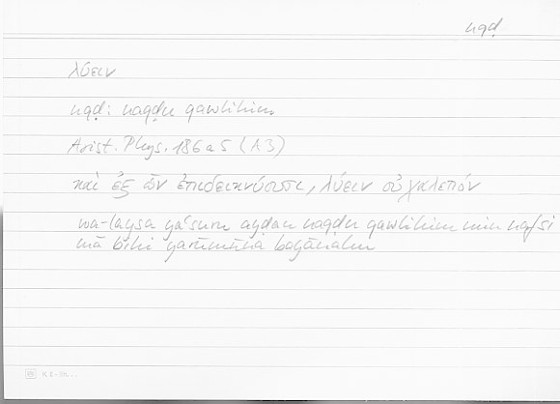 nqḍ
λύειν
nqḍ: naqḍu qawlihim
Arist. Phys. 186a5 (A3)
καὶ ἐξ ὧν ἐπιδεικνύουσι, λύειν οὐ χαλεπόν
wa-laysa yaʿsuru ayḍan naqḍu qawlihim min nafsi
mā bihi yarūmūna bayānahu